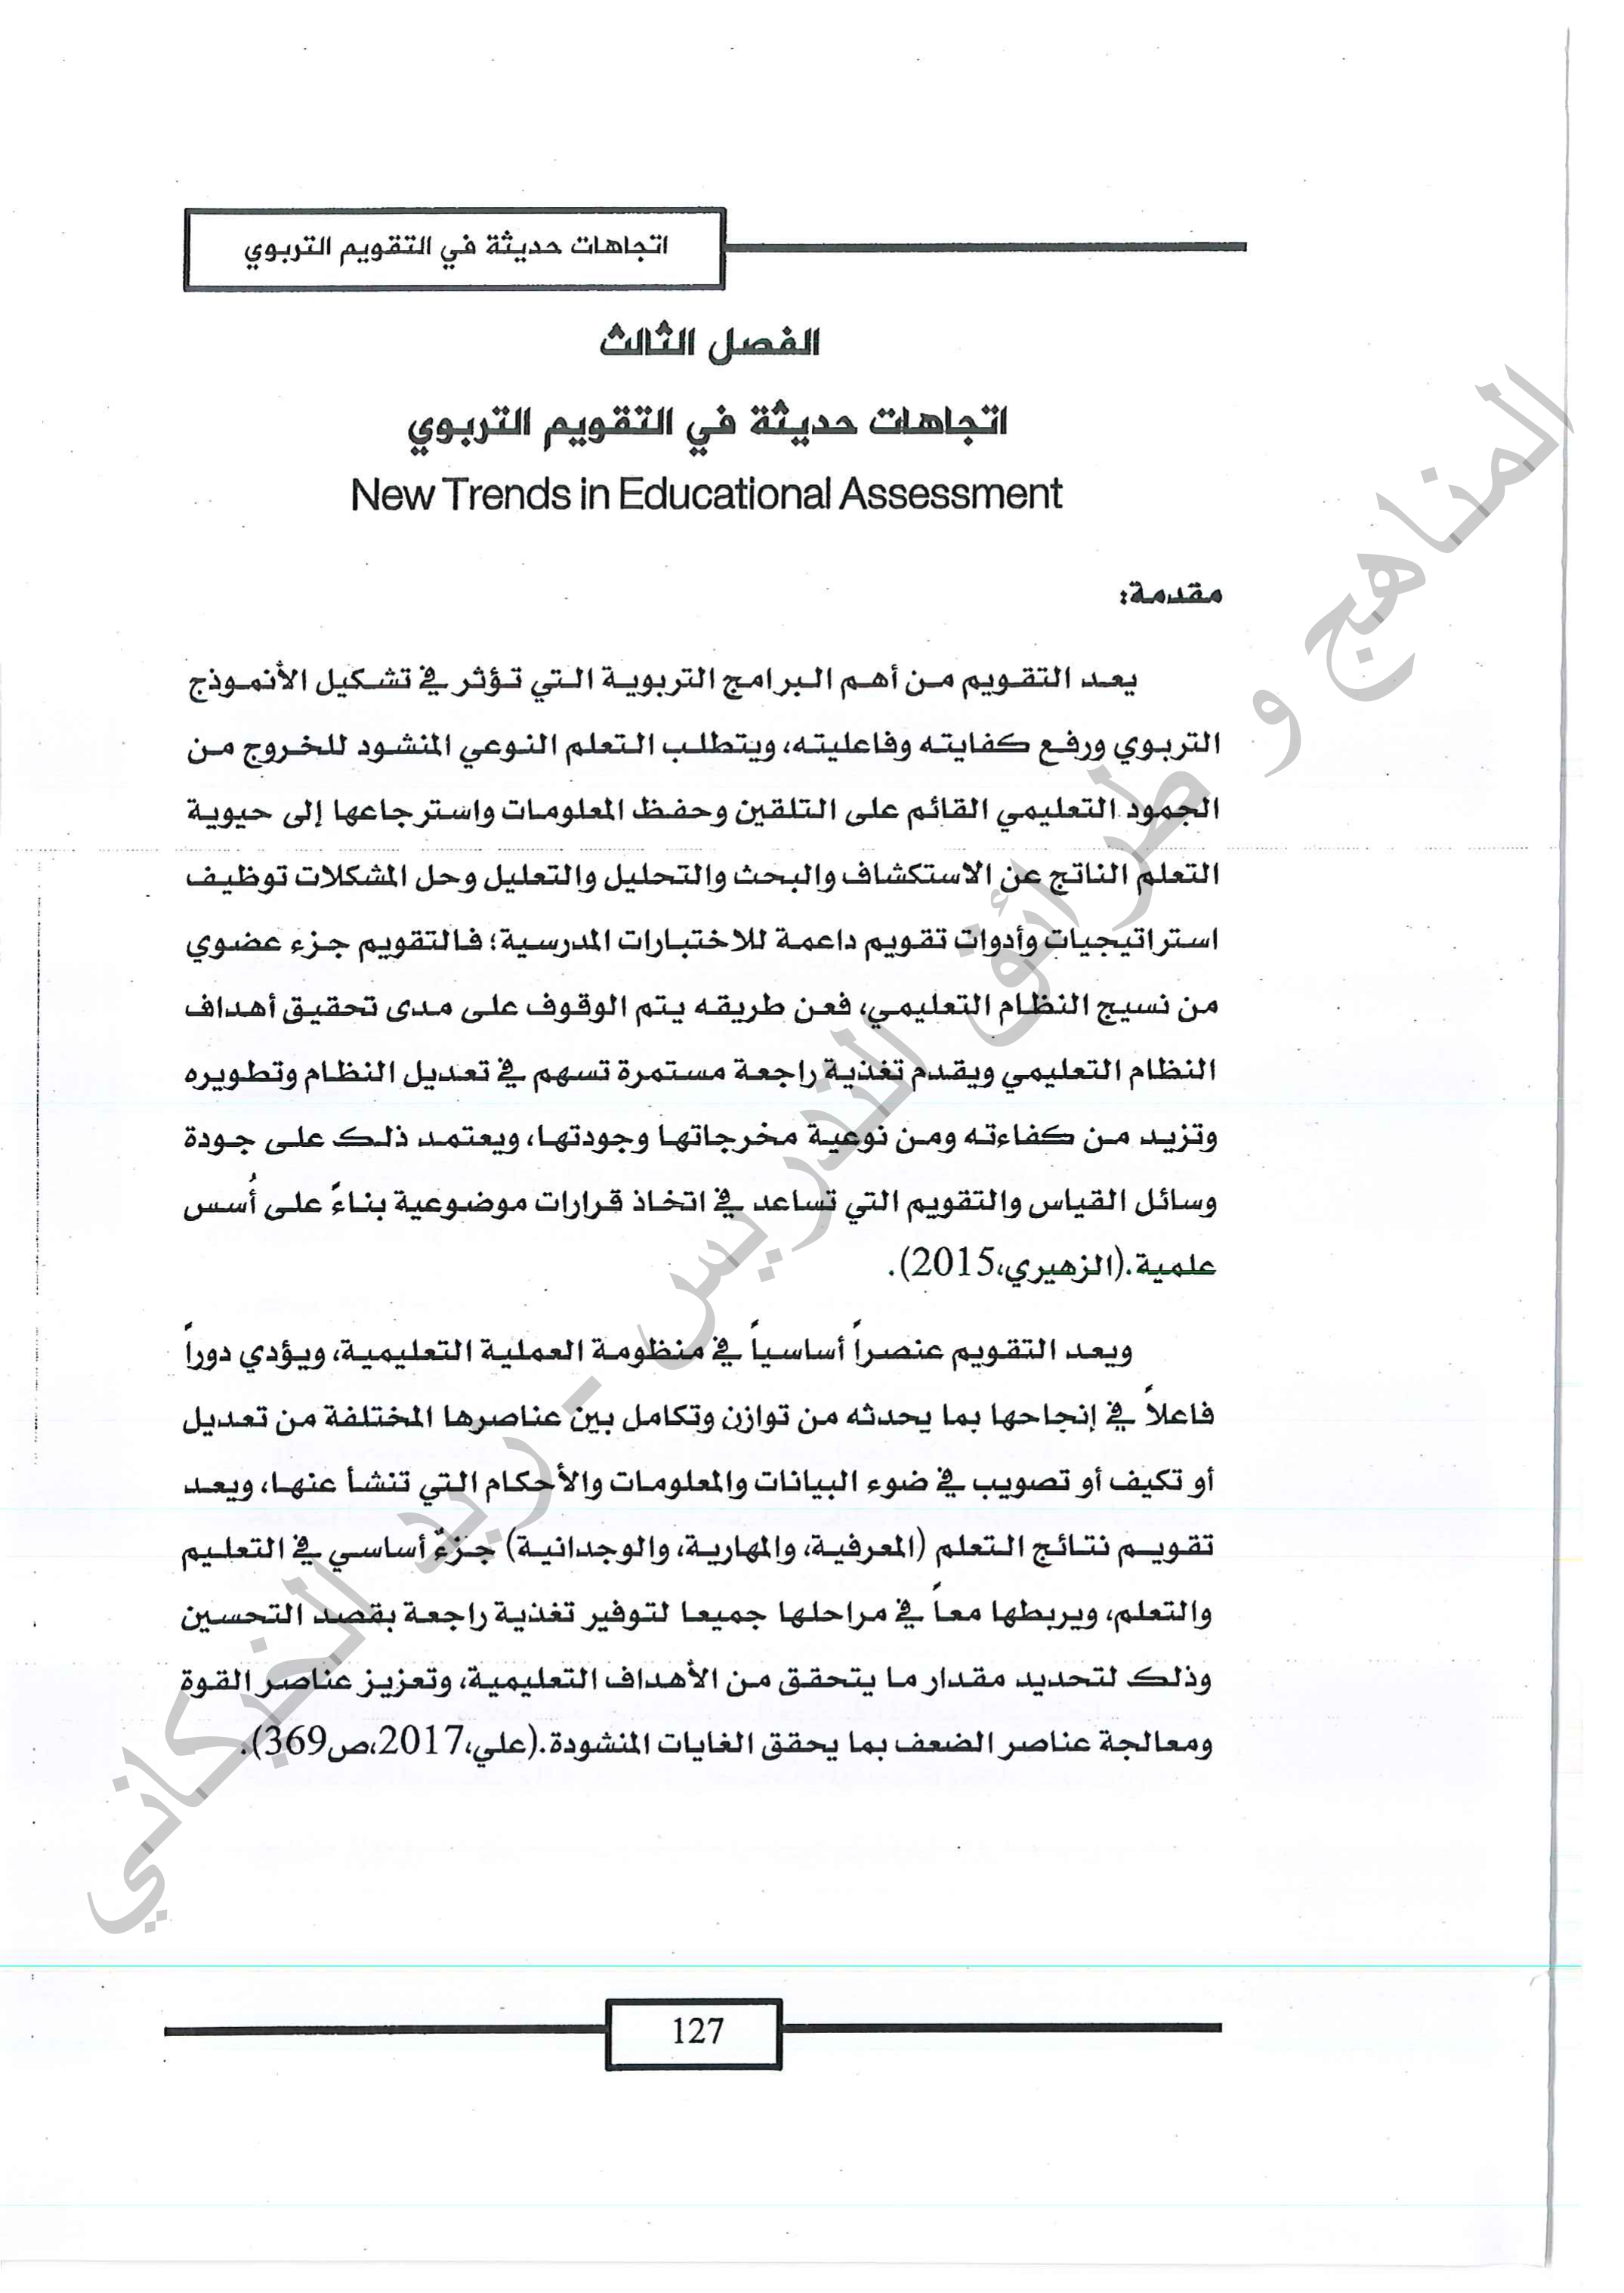 اتجاهات حديثة في التقويم التربوي
الفصل الثالث
اتجاهات حديثة في التقويم التربوي
New Trends in Educational Assessment
مقدمة:
يعد التقويم من أهم البرامج التربوية التي تؤثر في تشكيل الأنموذج
التربوي ورفع كفايته وفاعليته، ويتطلب التعلم النوعي المنشود للخروج من
الجمود التعليمي القائم على التلقين وحفظ المعلومات واسترجاعها إلى حيوية
التعلم الناتج عن الاستكشاف والبحث والتحليل والتعليل وحل المشكلات توظيف
استراتيجيات وأدوات تقويم داعمة للاختبارات المدرسية؛ فالتقويم جزء عضوي
من نسيج النظام التعليمي، فعن طريقه يتم الوقوف على مدى تحقيق أهداف
النظام التعليمي ويقدم تغذية راجعة مستمرة تسهم في تعديل النظام وتطويره
وتزيد من كفاءته ومن نوعية مخرجاتها وجودتها، ويعتمد ذلك على جودة
وسائل القياس والتقويم التي تساعد في اتخاذ قرارات موضوعية بناءً على أُسس
علمية.(الزهيري،2015).
ويعد التقويم عنصراً أساسياً في منظومة العملية التعليمية، ويؤدي دوراً
فاعلاً في إنجاحها بما يحدثه من توازن وتكامل بين عناصرها المختلفة من تعديل
أو تكيف أو تصويب في ضوء البيانات والمعلومات والأحكام التي تنشأ عنها، ويعد
تقويم نتائج التعلم (المعرفية، والمهارية، والوجدانية) جزءٌ أساسي في التعليم
والتعلم، ويربطها معاً في مراحلها جميعا لتوفير تغذية راجعة بقصد التحسين
وذلك لتحديد مقدار ما يتحقق من الأهداف التعليمية، وتعزيز عناصر القوة
ومعالجة عناصر الضعف بما يحقق الغايات المنشودة.(علي،2017،ص369).
المناهج و طرائق التدريس - ريد الخيكاني
127